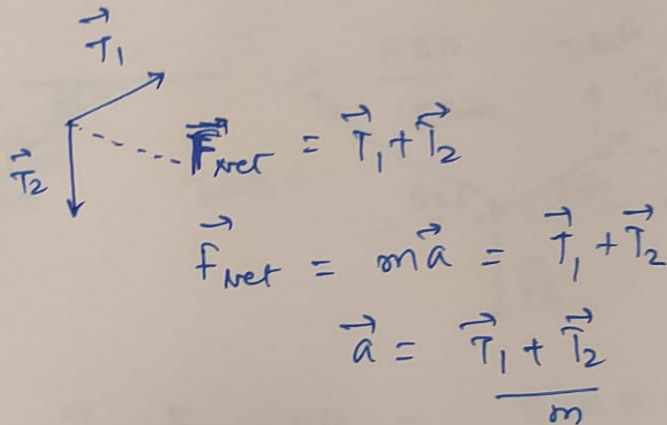 T⃗₁
F⃗net = T⃗₁ + T⃗₂
T⃗₂
F⃗net = ma⃗ = T⃗₁ + T⃗₂
a⃗ = T⃗₁ + T⃗₂
m